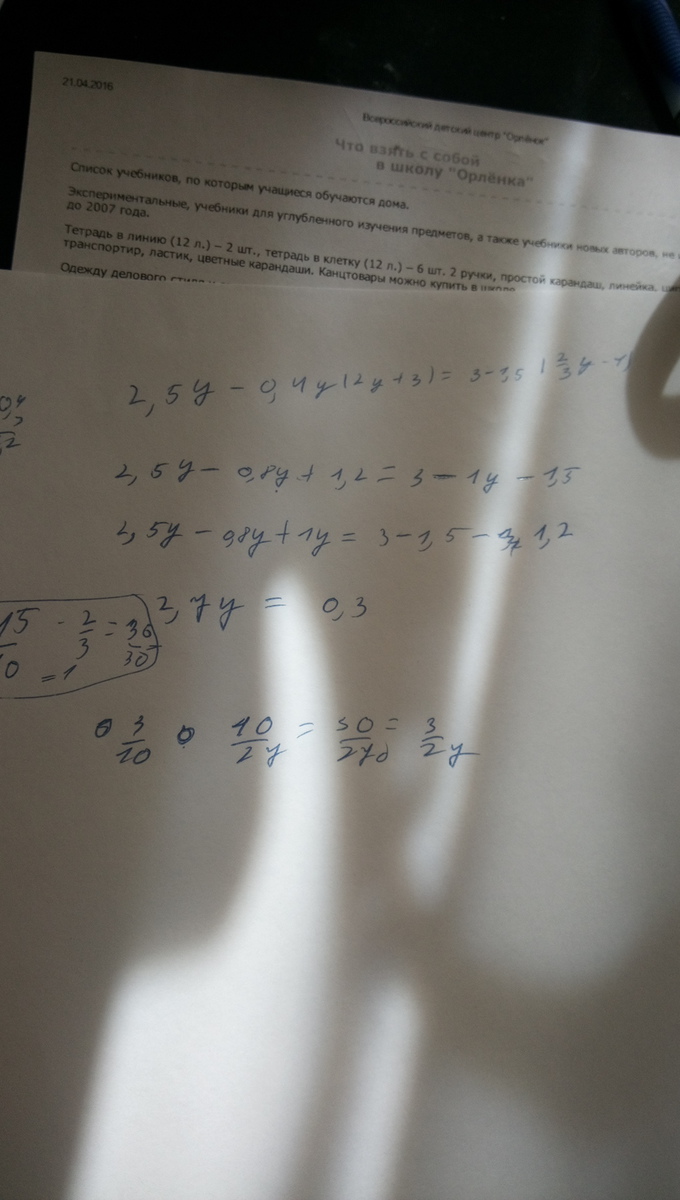 21.04.2016
Всероссийский детский центр "Орлёнок"
Что взять с собой
в школу "Орлёнка"
Список учебников, по которым учащиеся обучаются дома.
Экспериментальные, учебники для углубленного изучения предметов, а также учебники новых авторов, не
до 2007 года.
Тетрадь в линию (12 л.) – 2 шт., тетрадь в клетку (12 л.) – 6 шт. 2 ручки, простой карандаш, линейка,
транспортир, ластик, цветные карандаши. Канцтовары можно купить в школе
Одежду делового стиля
2,5y - 0,4y(2y+3) = 3-1,5(2/3y-1)
2,5y - 0,8y + 1,2 = 3 - 1y - 1,5
2,5y - 0,8y + 1y = 3-1,5 - 1,2
2,7y = 0,3
15/10 · 2/3 = 30/30 = 1
3/10 · 10/27 = 30/270 = 3/27